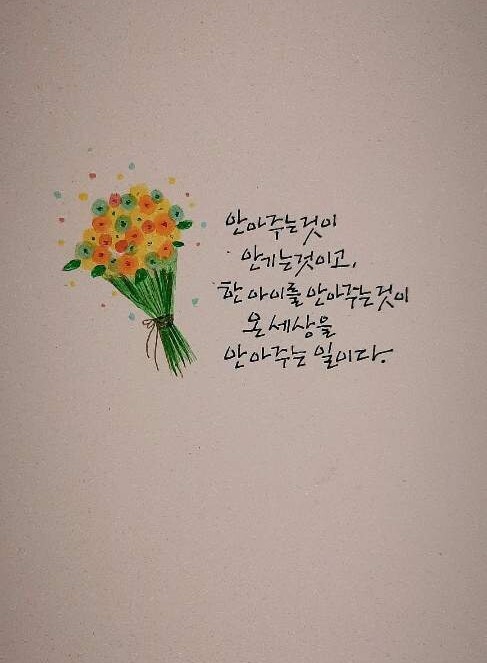 안아주는것이
안기는것이고,
한 아이를 안아주는것이
온 세상을
안아주는 일이다.